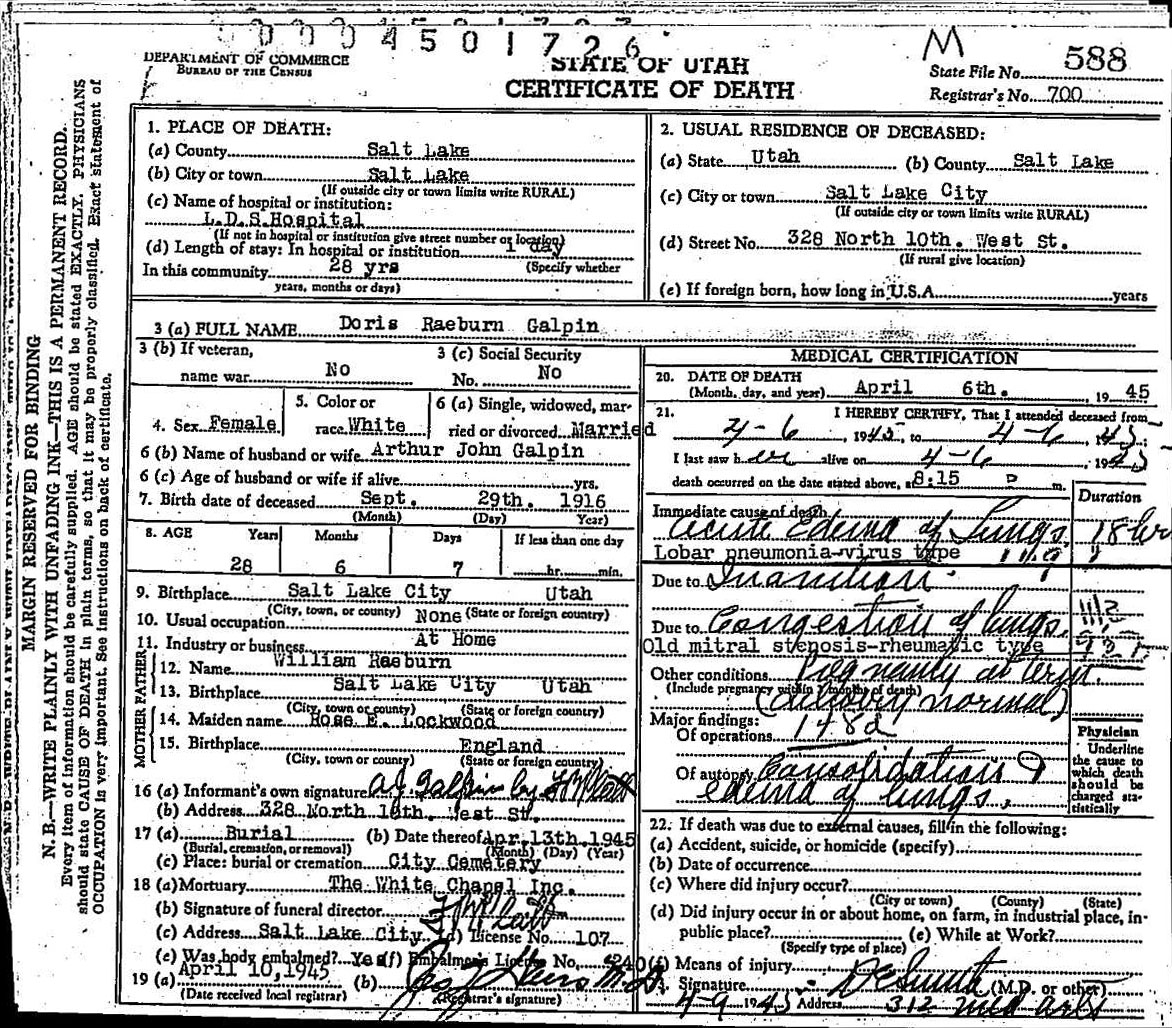 0004501726
DEPARTMENT OF COMMERCE
BUREAU OF THE CENSUS
STATE OF UTAH
CERTIFICATE OF DEATH
M 588
State File No.
Registrar's No. 700
MARGIN RESERVED FOR BINDING
N. B.—WRITE PLAINLY WITH UNFADING INK—THIS IS A PERMANENT RECORD.
Every item of information should be carefully supplied. AGE should be stated EXACTLY. PHYSICIANS
should state CAUSE OF DEATH in plain terms, so that it may be properly classified. Exact statement of
OCCUPATION is very important. See instructions on back of certificate.
1. PLACE OF DEATH:
(a) County Salt Lake
(b) City or town Salt Lake
(If outside city or town limits write RURAL)
(c) Name of hospital or institution:
L.D.S.Hospital
(If not in hospital or institution give street number or location)
(d) Length of stay: In hospital or institution 1 day
In this community 28 yrs (Specify whether
years, months or days)
2. USUAL RESIDENCE OF DECEASED:
(a) State Utah (b) County Salt Lake
(c) City or town Salt Lake City
(If outside city or town limits write RURAL)
(d) Street No. 328 North 10th. West St.
(If rural give location)
(e) If foreign born, how long in U.S.A. years
3 (a) FULL NAME Doris Raeburn Galpin
3 (b) If veteran, 3 (c) Social Security
name war No No. No
4. Sex Female 5. Color or race White 6 (a) Single, widowed, married or divorced Married
6 (b) Name of husband or wife Arthur John Galpin
6 (c) Age of husband or wife if alive yrs.
7. Birth date of deceased Sept. 29th. 1916
(Month) (Day) Year)
8. AGE Years Months Days If less than one day
28 6 7 hr. min.
9. Birthplace Salt Lake City Utah
(City, town, or county) (State or foreign country)
10. Usual occupation None
11. Industry or business At Home
FATHER
12. Name William Raeburn
13. Birthplace Salt Lake City Utah
(City, town or county) (State or foreign country)
MOTHER
14. Maiden name Rose E. Lockwood
15. Birthplace England
(City, town or county) (State or foreign country)
16 (a) Informant's own signature A.J. Galpin by
(b) Address 328 North 10th. West St.
17 (a) Burial (b) Date thereof Apr.13th.1945
(Burial, cremation, or removal) (Month) (Day) (Year)
(c) Place: burial or cremation City Cemetery
18 (a) Mortuary The White Chapel Inc.
(b) Signature of funeral director
(c) Address Salt Lake City (d) License No. 107
(e) Was body embalmed? Yes (f) Embalmer's License No. 240
19 (a) April 10,1945 (b) M.D.
(Date received local registrar) (Registrar's signature)
MEDICAL CERTIFICATION
20. DATE OF DEATH
(Month, day, and year) April 6th. 1945
21. I HEREBY CERTIFY, That I attended deceased from
4-6, 1945, to 4-6, 45
I last saw her alive on 4-6, 1945
death occurred on the date stated above, a 8:15 P m.
Duration
Immediate cause of death
Acute Edema of Lungs 18 hr
Lobar pneumonia-virus type
Due to Inanition
Due to Congestion of lungs
Old mitral stenosis-rheumatic type
Other conditions Pregnancy at term.
(Include pregnancy within 3 months of death)
(delivery normal)
Major findings:
Of operations 148d
Of autopsy Consolidation &
edema of lungs.
Physician
Underline
the cause to
which death
should be
charged sta-
tistically
22. If death was due to external causes, fill in the following:
(a) Accident, suicide, or homicide (specify)
(b) Date of occurrence
(c) Where did injury occur?
(City or town) (County) (State)
(d) Did injury occur in or about home, on farm, in industrial place, in-
public place? (e) While at Work?
(Specify type of place)
(f) Means of injury
Signature (M.D. or other)
4-9 1945 Address 312 Med arts